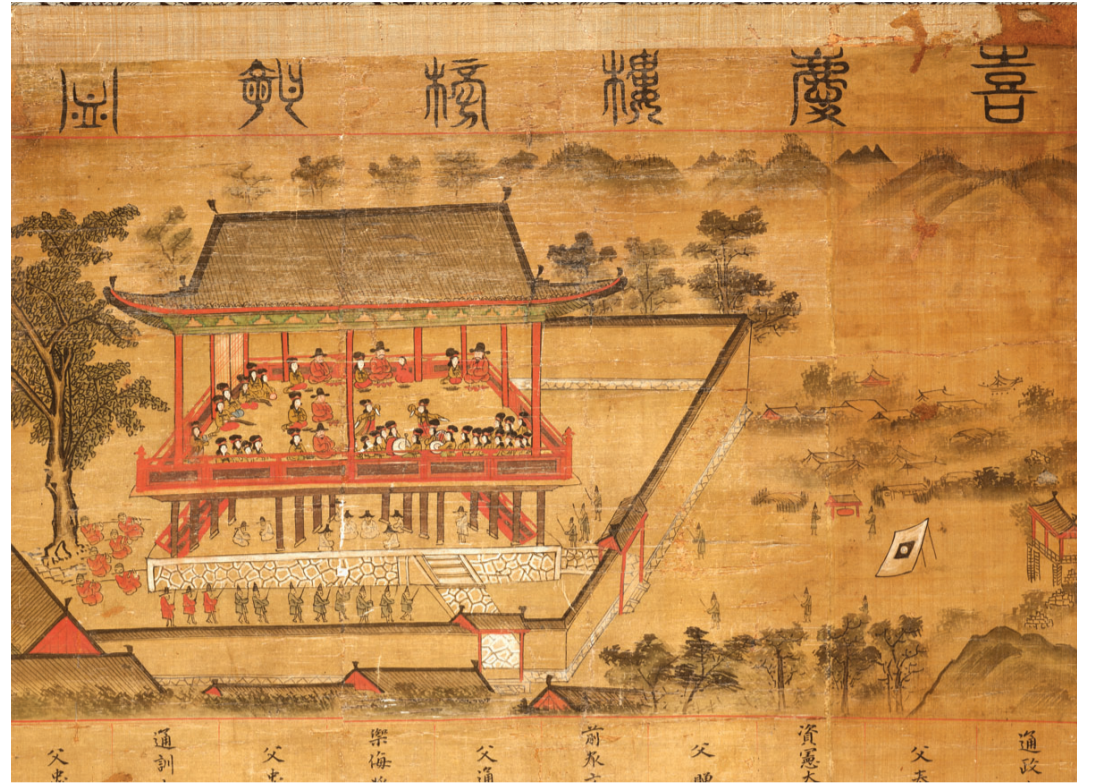 喜慶樓榜會圖
通政
父
資憲大
父贈
前
父通
禦侮將
父忠
通訓
父忠